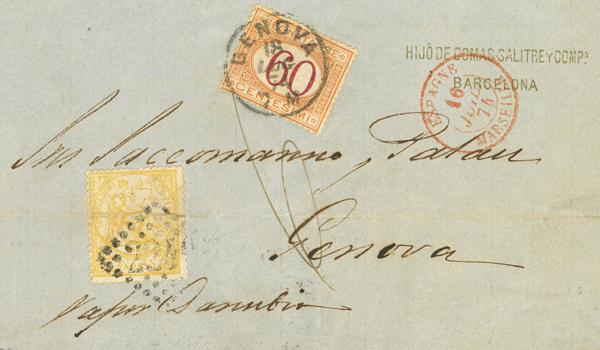 GENOVA
18
60
CENTESIMI
HIJO DE COMAS, SALITRE Y COMPª
BARCELONA
ESPAGNE
16
74
MARSEILLE
Srs Saccomanno, Palau
Genova
Vapor Danubio